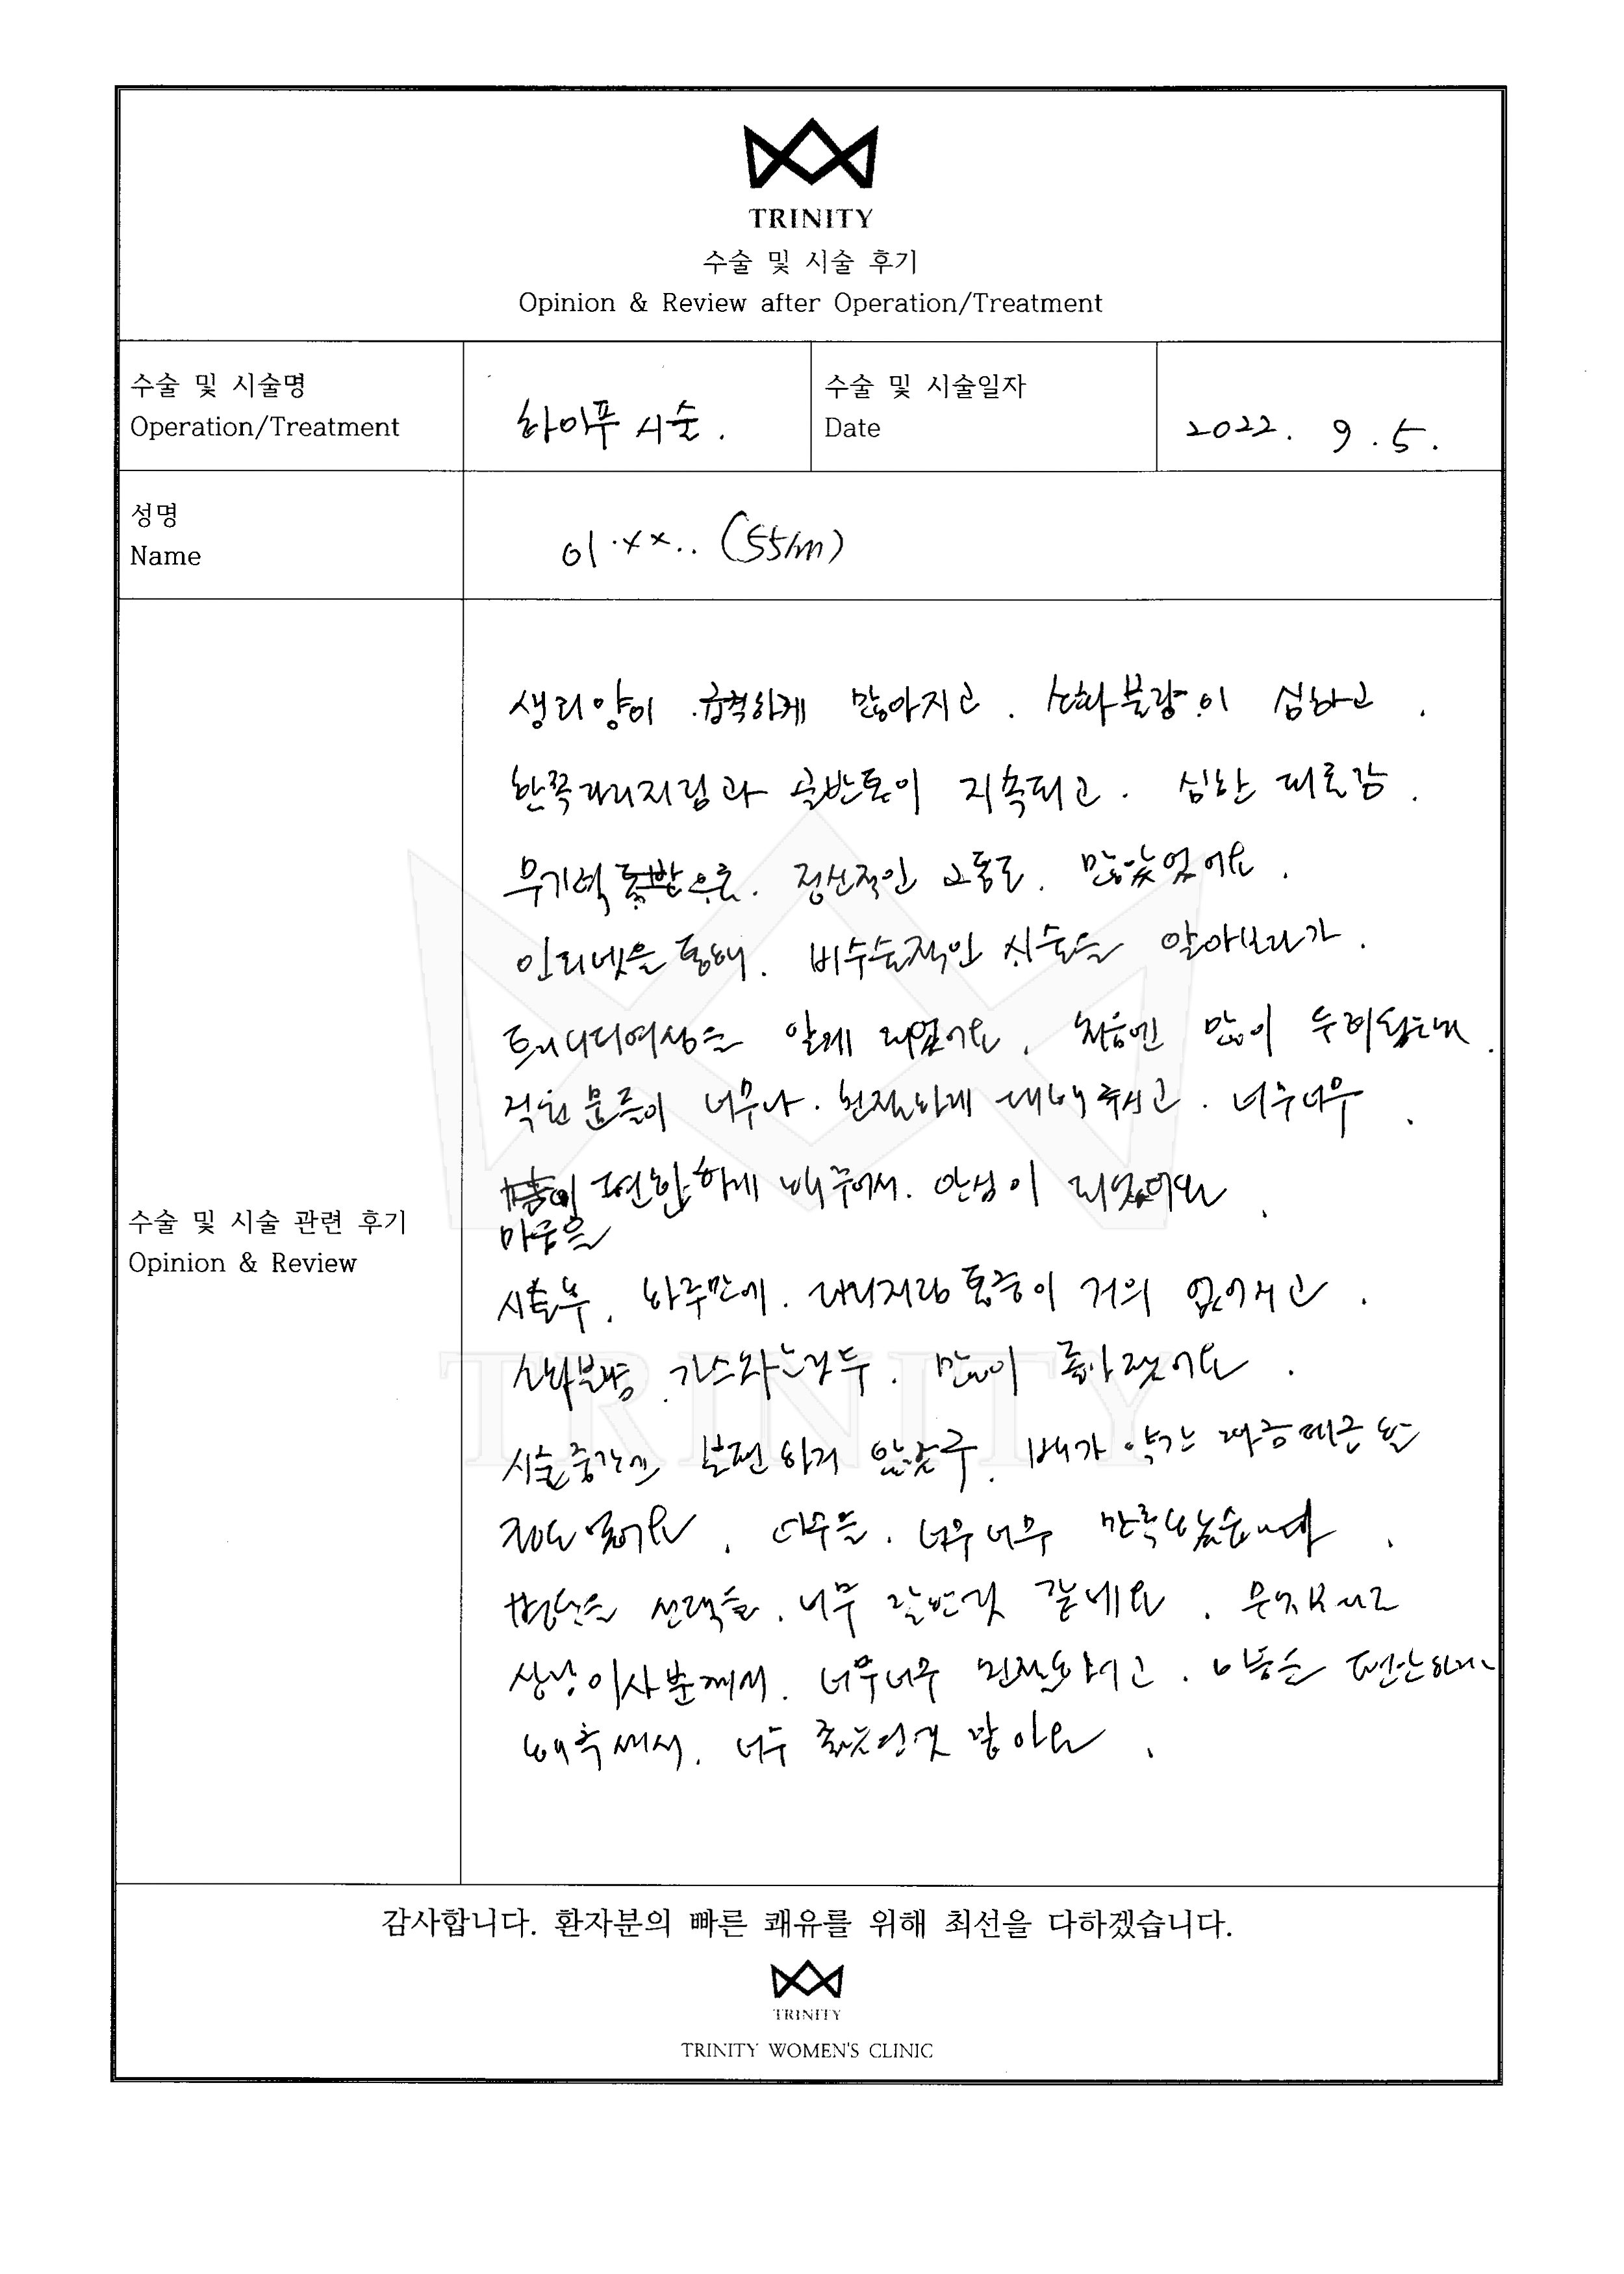 TRINITY
수술 및 시술 후기
Opinion & Review after Operation/Treatment
수술 및 시술명
Operation/Treatment
하이푸 시술.
수술 및 시술일자
Date
2022. 9. 5.
성명
Name
이·xx.. (55/m)
수술 및 시술 관련 후기
Opinion & Review
생리양이 급격하게 많아지고. 소화불량이 심하고.
한쪽다리저림과 골반통이 지속되고. 심한 피로감.
무기력 동반으로. 정신적인 고통도. 많았었어요.
인터넷을 통해. 비수술적인 시술을 알아보다가.
트리니티여성을 알게 되었어요. 처음엔 많이
직원분들이 너무나. 친절하게 대해주시고. 너무너무.
마음을 편안하게 해주어서. 안심이 되었어요.
시술후. 하루만에. 다리저림 통증이 거의 없어지고.
소화불량. 많이 좋아졌어요.
시술중간에 불편하지 않았구. 배가 약간 따끔따끔한
정도였어요. 너무너무 만족했습니다.
병원을 선택을. 너무 잘한것 같네요.
상담이사분께서. 너무너무 친절하시고. 마음을 편안하게
해주셔서. 너무 좋았던것 같아요.
감사합니다. 환자분의 빠른 쾌유를 위해 최선을 다하겠습니다.
TRINITY
TRINITY WOMEN'S CLINIC